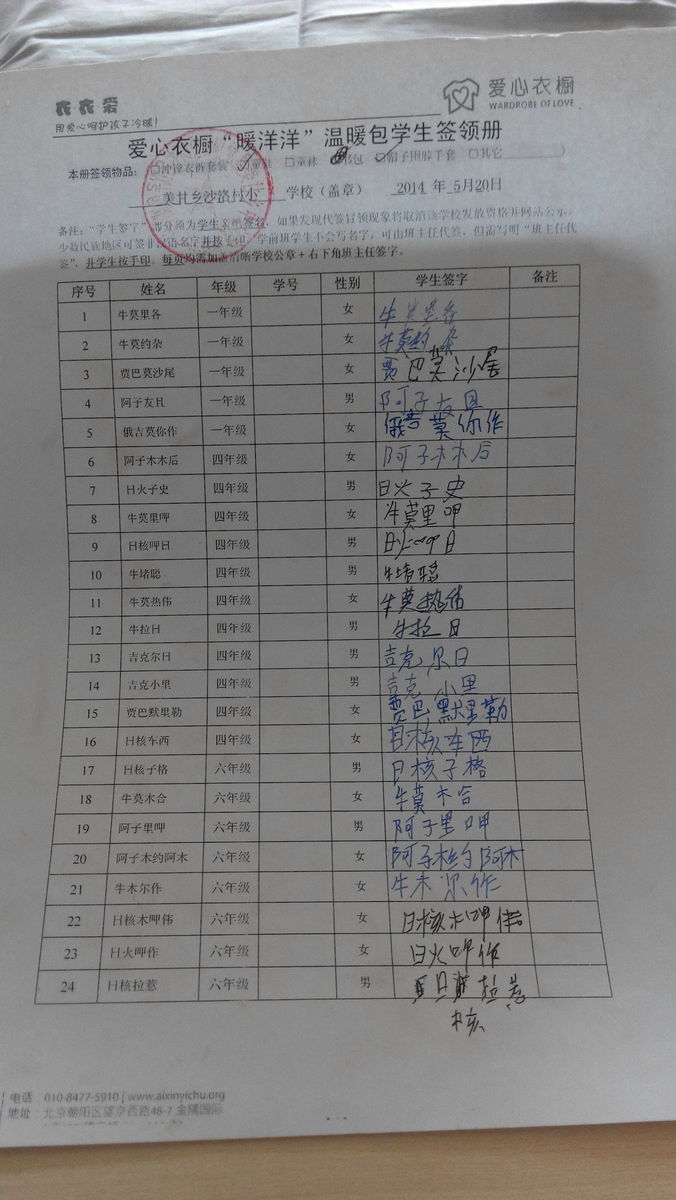 衣衣爱
用爱心呵护孩子冷暖!
爱心衣橱
WARDROBE OF LOVE
爱心衣橱“暖洋洋”温暖包学生签领册
本册签领物品: □冲锋衣裤套装 ☑童鞋 □童袜 书包 ☑帽子围脖手套 □其它 )
美甘乡沙洛村小 学校(盖章) 2014 年 5月20日
备注:“学生签字”部分须为学生亲笔签名,如果发现代签冒领现象将取消该学校发放资格并网站公示。
少数民族地区可签非汉语名字并按手印,学前班学生不会写名字,可由班主任代签,但需写明“班主任代
签”,并学生按手印。每页均需加盖清晰学校公章+右下角班主任签字。
序号 姓名 年级 学号 性别 学生签字 备注
1 牛莫里各 一年级 女 牛莫里各
2 牛莫约杂 一年级 女 牛莫约杂
3 贾巴莫沙尾 一年级 女 贾巴莫沙尾
4 阿子友且 一年级 男 阿子友且
5 俄吉莫你作 一年级 女 俄吉莫你作
6 阿子木木后 四年级 女 阿子木木后
7 日火子史 四年级 男 日火子史
8 牛莫里呷 四年级 女 牛莫里呷
9 日核呷日 四年级 男 日 呷日
10 牛堵聪 四年级 男 牛堵聪
11 牛莫热伟 四年级 女 牛莫热伟
12 牛拉日 四年级 男 牛拉日
13 吉克尔日 四年级 男 吉克尔日
14 吉克小里 四年级 男 吉克小里
15 贾巴默里勒 四年级 女 贾巴默里勒
16 日核东西 四年级 女 日核东西
17 日核子格 六年级 男 日核子格
18 牛莫木合 六年级 女 牛莫木合
19 阿子里呷 六年级 男 阿子里呷
20 阿子木约阿木 六年级 女 阿子木约阿木
21 牛木尔作 六年级 女 牛木尔作
22 日核木呷伟 六年级 女 日核木呷伟
23 日火呷作 六年级 女 日火呷作
24 日核拉惹 六年级 男 日 拉惹
核
电话:010-8477-5910 | www.aixinyichu.org
地址:北京朝阳区望京西路48-7 金隅国际